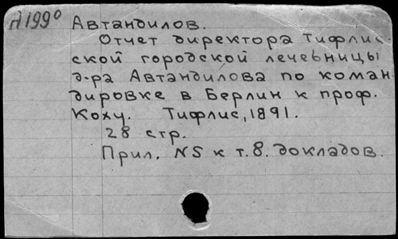 А199⁰ Автандилов.
Отчет директора Тифлис-
ской городской лечебницы
д-ра Автандилова по коман
дировке в Берлин к проф.
Коху. Тифлис, 1891.
28 стр.
Прил. N5 к т. 8. докладов.